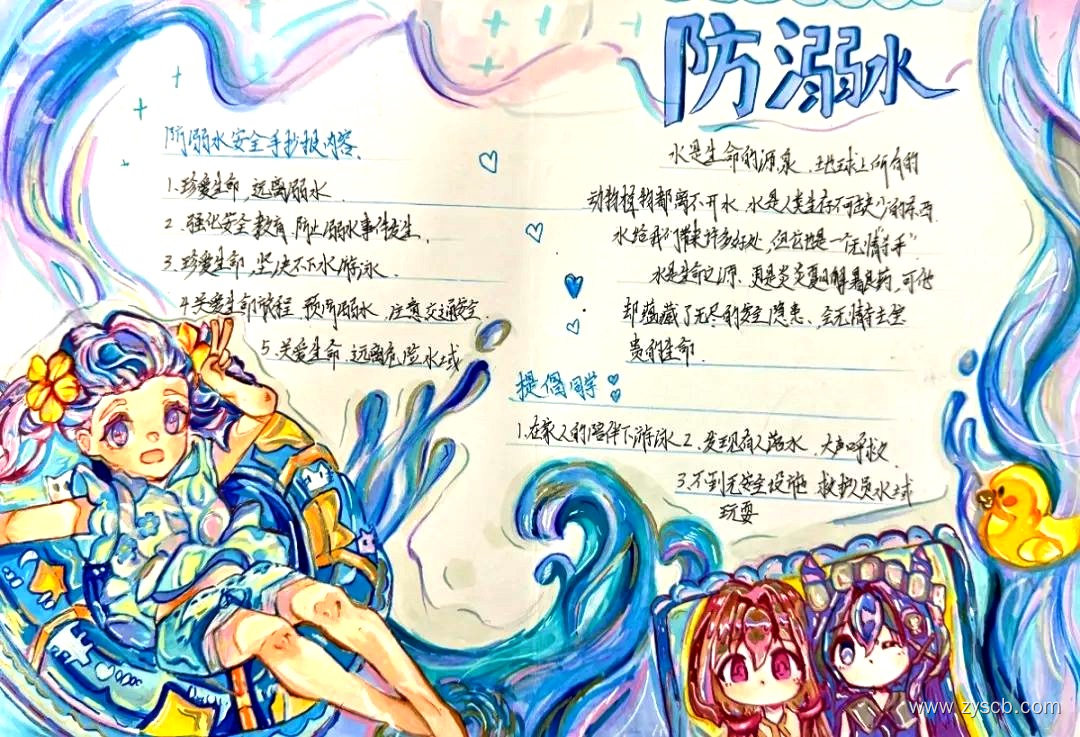 防溺水
防溺水安全手抄报内容
1.珍爱生命,远离溺水.
2.强化安全教育,防止溺水事件发生.
3.珍爱生命,坚决不下水游泳.
4.关爱生命旅程,预防溺水,注意交通安全.
5.关爱生命,远离危险水域
水是生命的源泉,地球上所有的
动物植物都离不开水,水是人类生存不可缺少的东西.
水给我们带来许多好处,但它也是一个"无情杀手".
水是生命之源,更是炎炎夏日解暑良药,可他
却蕴藏了无尽的安全隐患、会无情去宝
贵的生命.
提倡同学
1.在家人的陪伴下游泳2.发现有人落水,大声呼救.
3.不到无安全设施,救护员水域
玩耍
www.zyscb.com